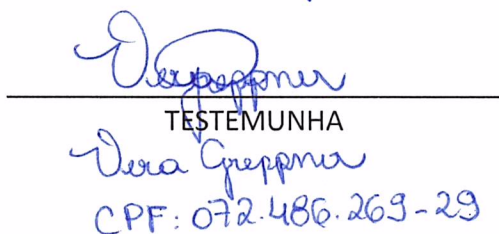 TESTEMUNHA
Vera Greppner
CPF: 072.486.269-29